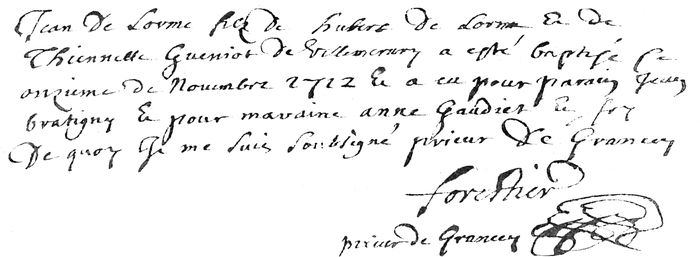 Jean De Lorme filz de hubert de Lorme & de
Thiennette Gueniot de villemervry a esté baptisé Ce
onzieme de Novembre 1712 & a eu pour parain Jean
bratigny & pour maraine anne Gaudiet En foy
De quoy Je me suis soubsigné prieur De Grancey
forestier
prieur de Grancey